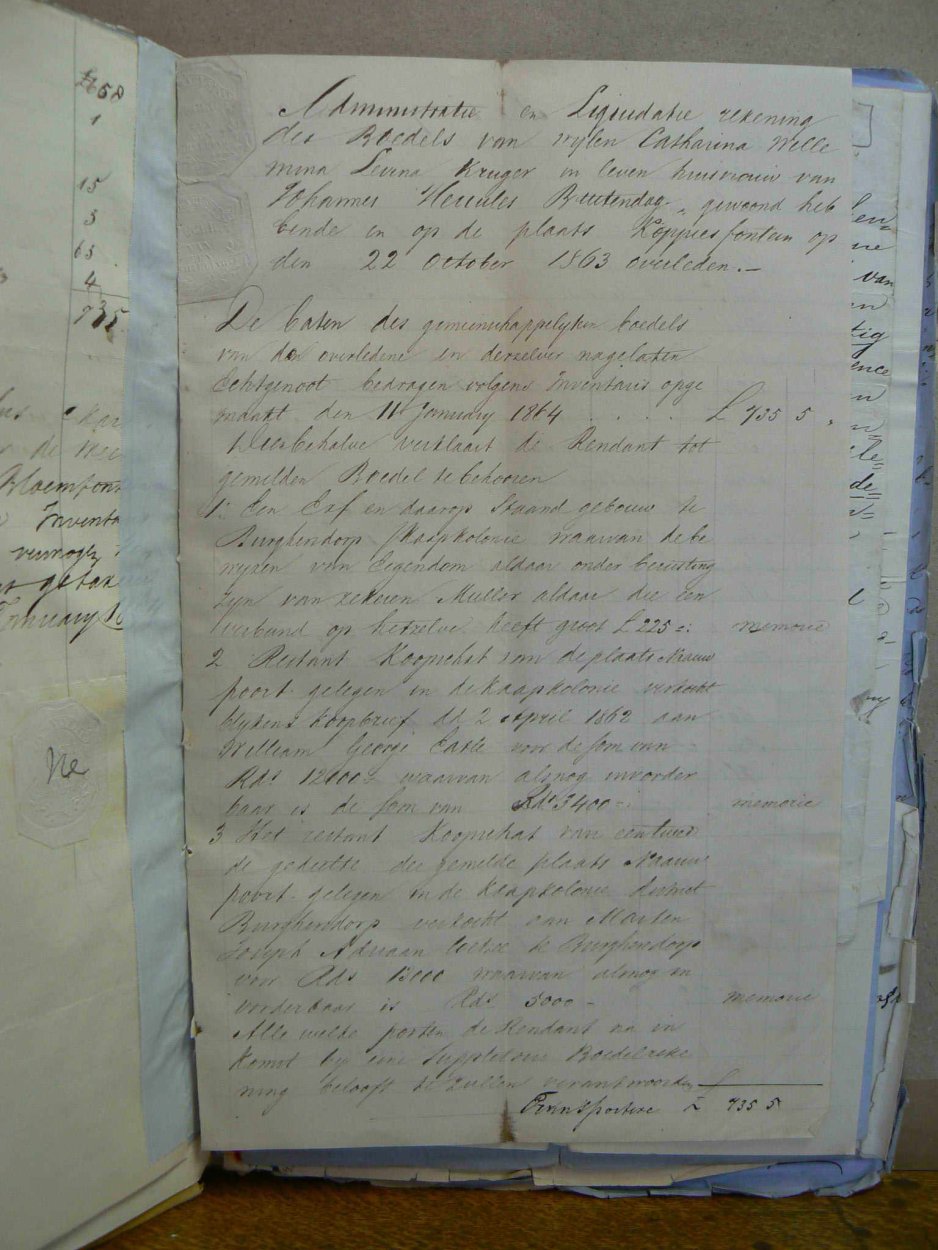 Administratie en Liquidatie rekening
des Boedels van wylen Catharina Wille
mina Levina Kruger in leven huisvrouw van
Johannes Hercules Buitendag, gewoond heb
bende en op de plaats Koppiesfontein op
den 22 October 1863 overleden.—
De baten des gemeenschappelyken boedels
van den overledene en derzelver nagelaten
Echtgenoot bedragen volgens Inventaris opge
maakt den 11 January 1864 . . . . . £ 735 5 "
Meerbehalve verklaart de Rendant tot
gemelden Boedel te behooren
1: Een Erf en daarop Staand gebouw te
Burghersdorp /Kaapkolonie waarvan de be
wyzen van Eigendom aldaar onder berusting
zyn van zekeren Muller aldaar die een
verband op hetzelve heeft groot £ 225 =: memorie
2 Restant Koopschat van de plaats Naauw
poort gelegen in de Kaapkolonie verkocht
blykens koopbrief dd 2 April 1862 aan
William George Castle voor de som van
Rds 12000 = waarvan alsnog invorder
baar is de som van Rds 3400 =. memorie
3 Het restant Koopschat van een twee
de gedeelte der gemelde plaats Naauw
poort gelegen in de Kaapkolonie district
Burghersdorp verkocht aan Marten
Joseph Adriaan Coetze te Burghersdorp
voor Rds 13000 waarvan alsnog in
vorderbaar is Rds 5000 - memorie
Alle welke posten de Rendant na in
komst by eene Suppletoire Boedelreke
ning belooft te zullen verantwoorden
Transportere £ 735 5
1
15
5
65
4
735
de
Bloemfont
Inventa
vermogen
getax
January
Ne
en
van
tig
ence
de